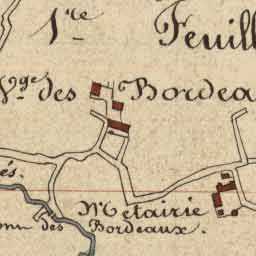 1re Feuill
Vge des Bordea
és.
Metairie
des Bordeaux.